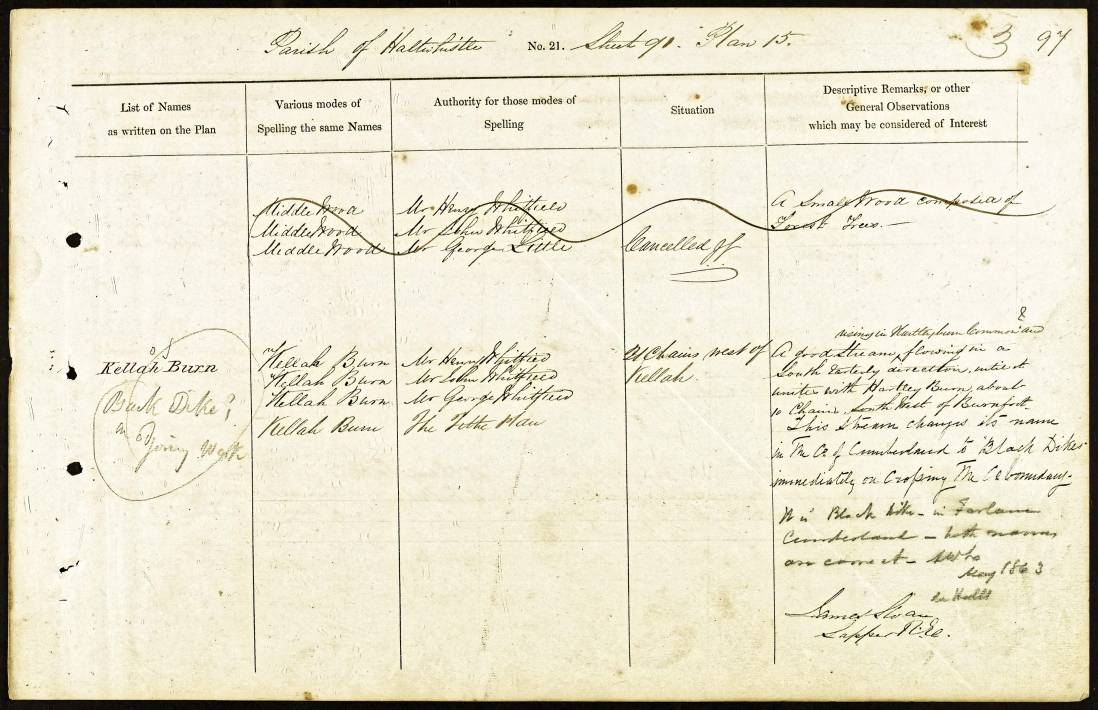 Parish of Haltwhistle No. 21. Sheet 91. Plan 15. 3 97
List of Names
as written on the Plan
Various modes of
Spelling the same Names
Authority for those modes of
Spelling
Situation
Descriptive Remarks, or other
General Observations
which may be considered of Interest
Middle Wood Mr Henry Whitfield A Small Wood composed of
Middle Wood Mr John Whitfield Forest Trees.—
Middle Wood Mr George Little Cancelled
Kellah Burn
Dike?
Kellah Burn Mr Henry Whitfield
Kellah Burn Mr John Whitfield
Kellah Burn Mr George Whitfield
Kellah Burn The Tithe Plan
Chains west of
Kellah.
rising in Hartleyburn Common and
A good stream, flowing in a
South Easterly direction, until it
unites with Hartley Burn, about
10 Chains South West of Burnfoot.
This Stream changes its name
in The Co of Cumberland to "Black Dike"
immediately on Crossing The Co boundary.
It is Black Dike - in Farlam
Cumberland - both names
are correct -
May 1863
James Sloan
Sapper R.E.